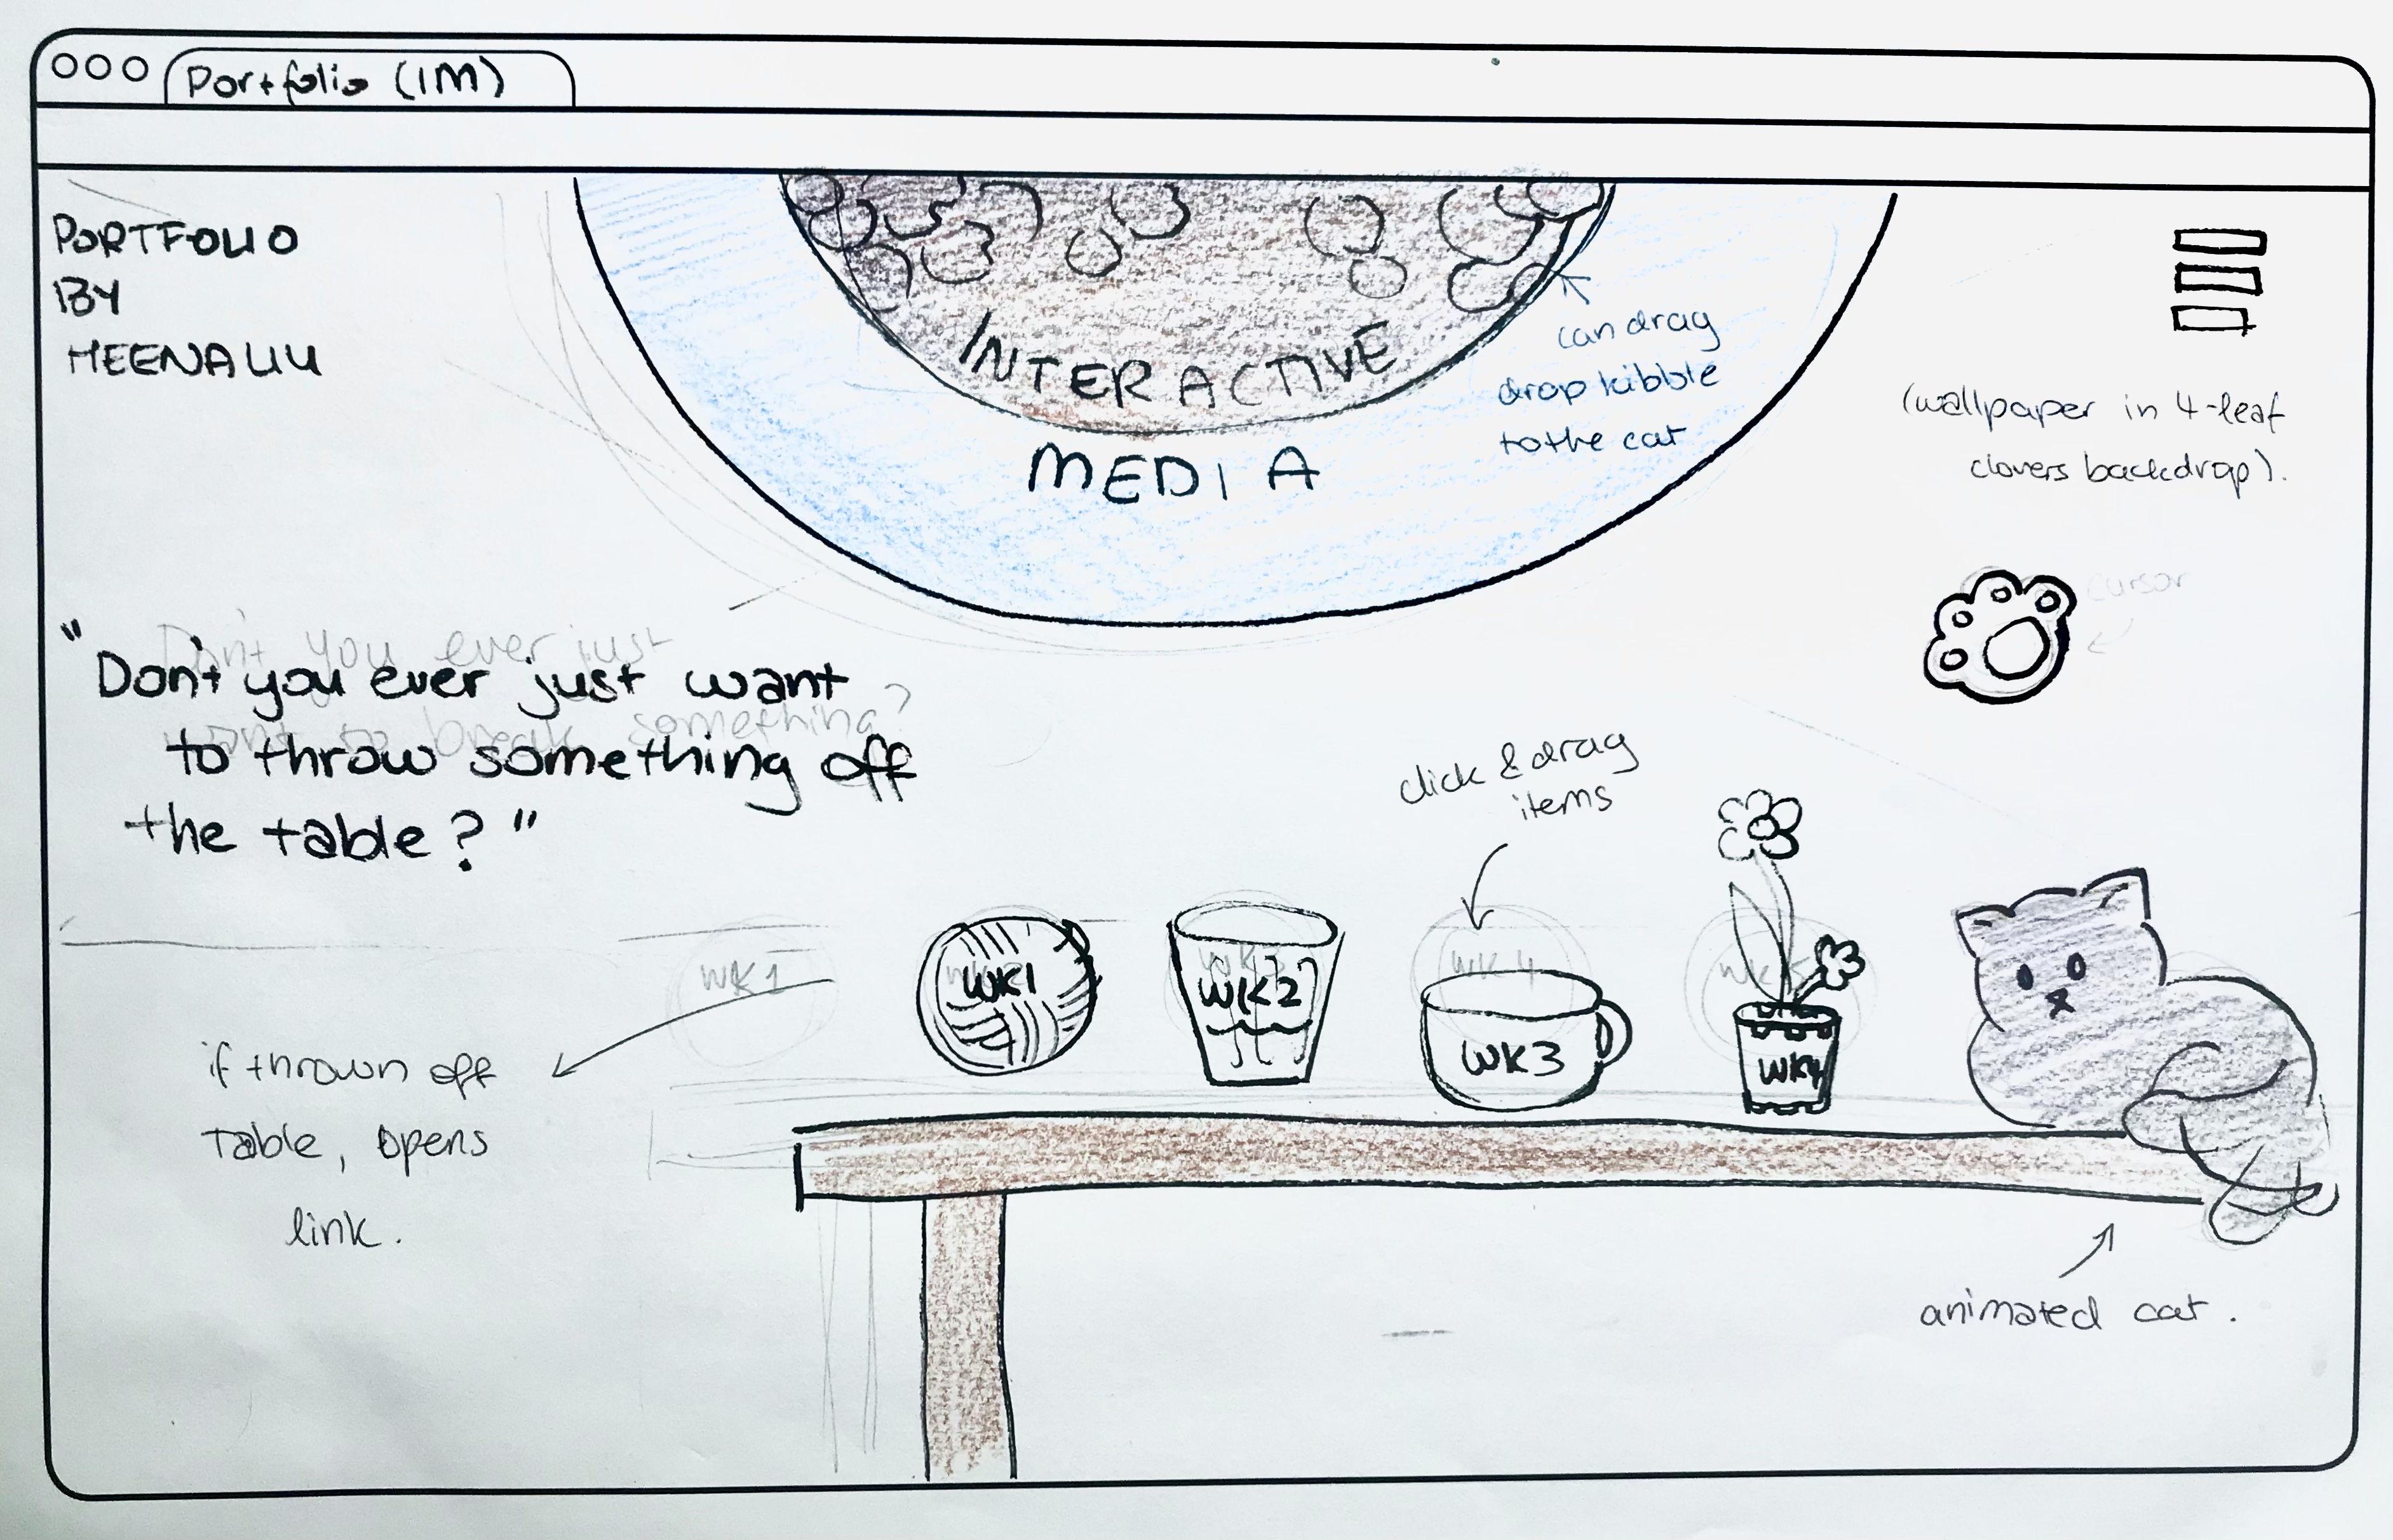 Portfolio (IM)
PORTFOLIO
BY
MEENALUU
INTERACTIVE
MEDIA
can drag
drop kibble
to the cat
(wallpaper in 4-leaf
clovers backdrop).
cursor
Don't you ever just
want to break something?
"Don't you ever just want
to throw something off
the table?"
click & drag
items
WK1
WK4
WK1
WK2
WK3
WK4
if thrown off
table, opens
link.
animated cat.